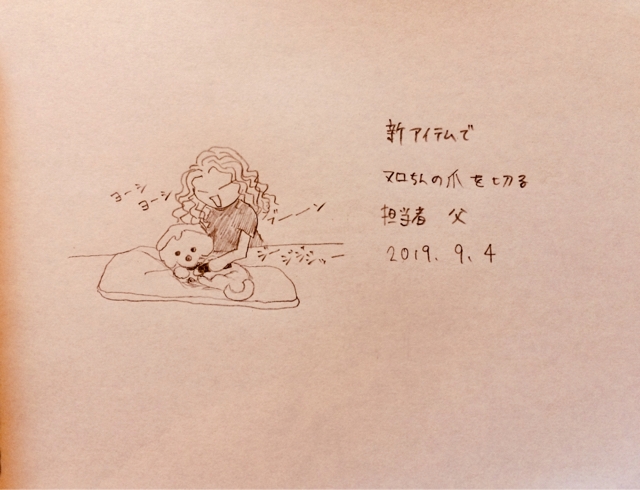 新アイテムで
マロちんの爪を切る
担当者 父
2019. 9. 4
ヨーシ
ヨーシ
ブーーン
ジージジジッー